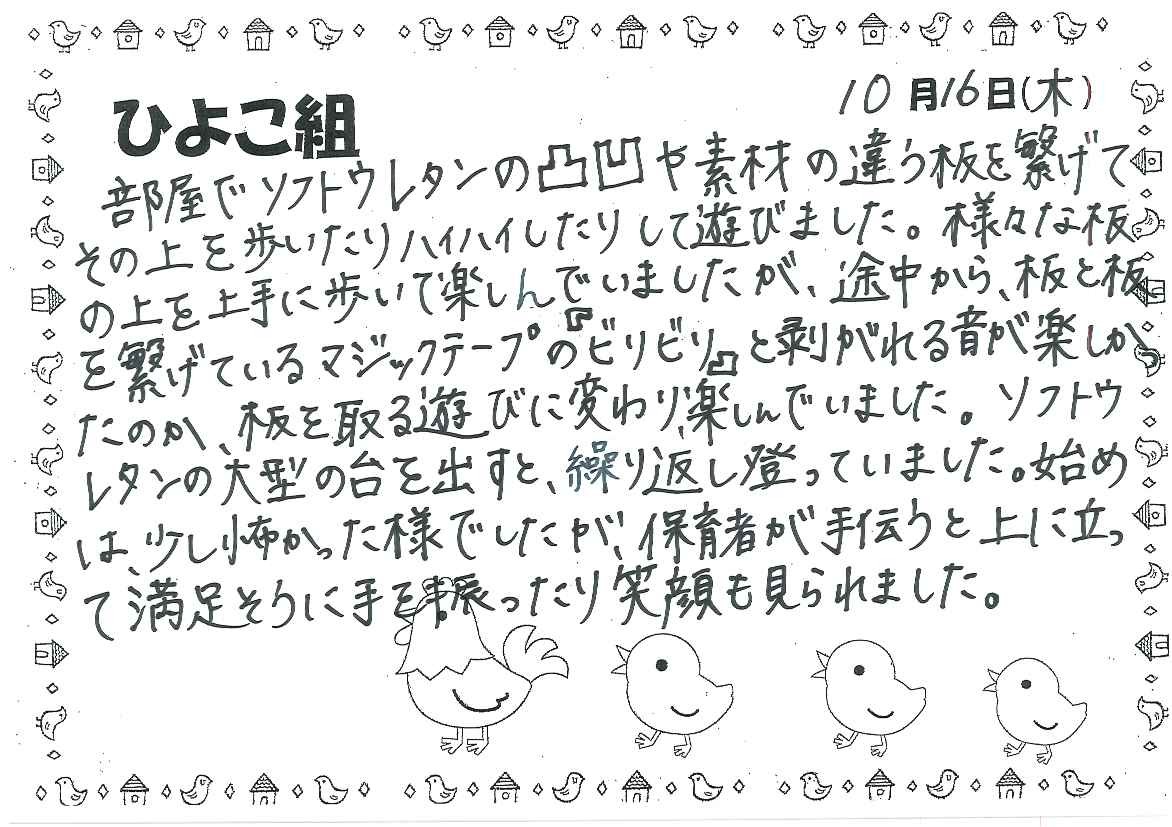 ひよこ組
10月16日(木)
部屋でソフトウレタンの凸凹や素材の違う板を繋げて
その上を歩いたりハイハイしたりして遊びました。様々な板
の上を上手に歩いて楽しんでいましたが、途中から、板と板
を繋げているマジックテープの『ビリビリ』と剥がれる音が楽しかっ
たのか、板を取る遊びに変わり、楽しんでいました。ソフトウ
レタンの大型の台を出すと、繰り返し登っていました。始め
は、少し怖かった様でしたが、保育者が手伝うと上に立っ
て満足そうに手を振ったり笑顔も見られました。